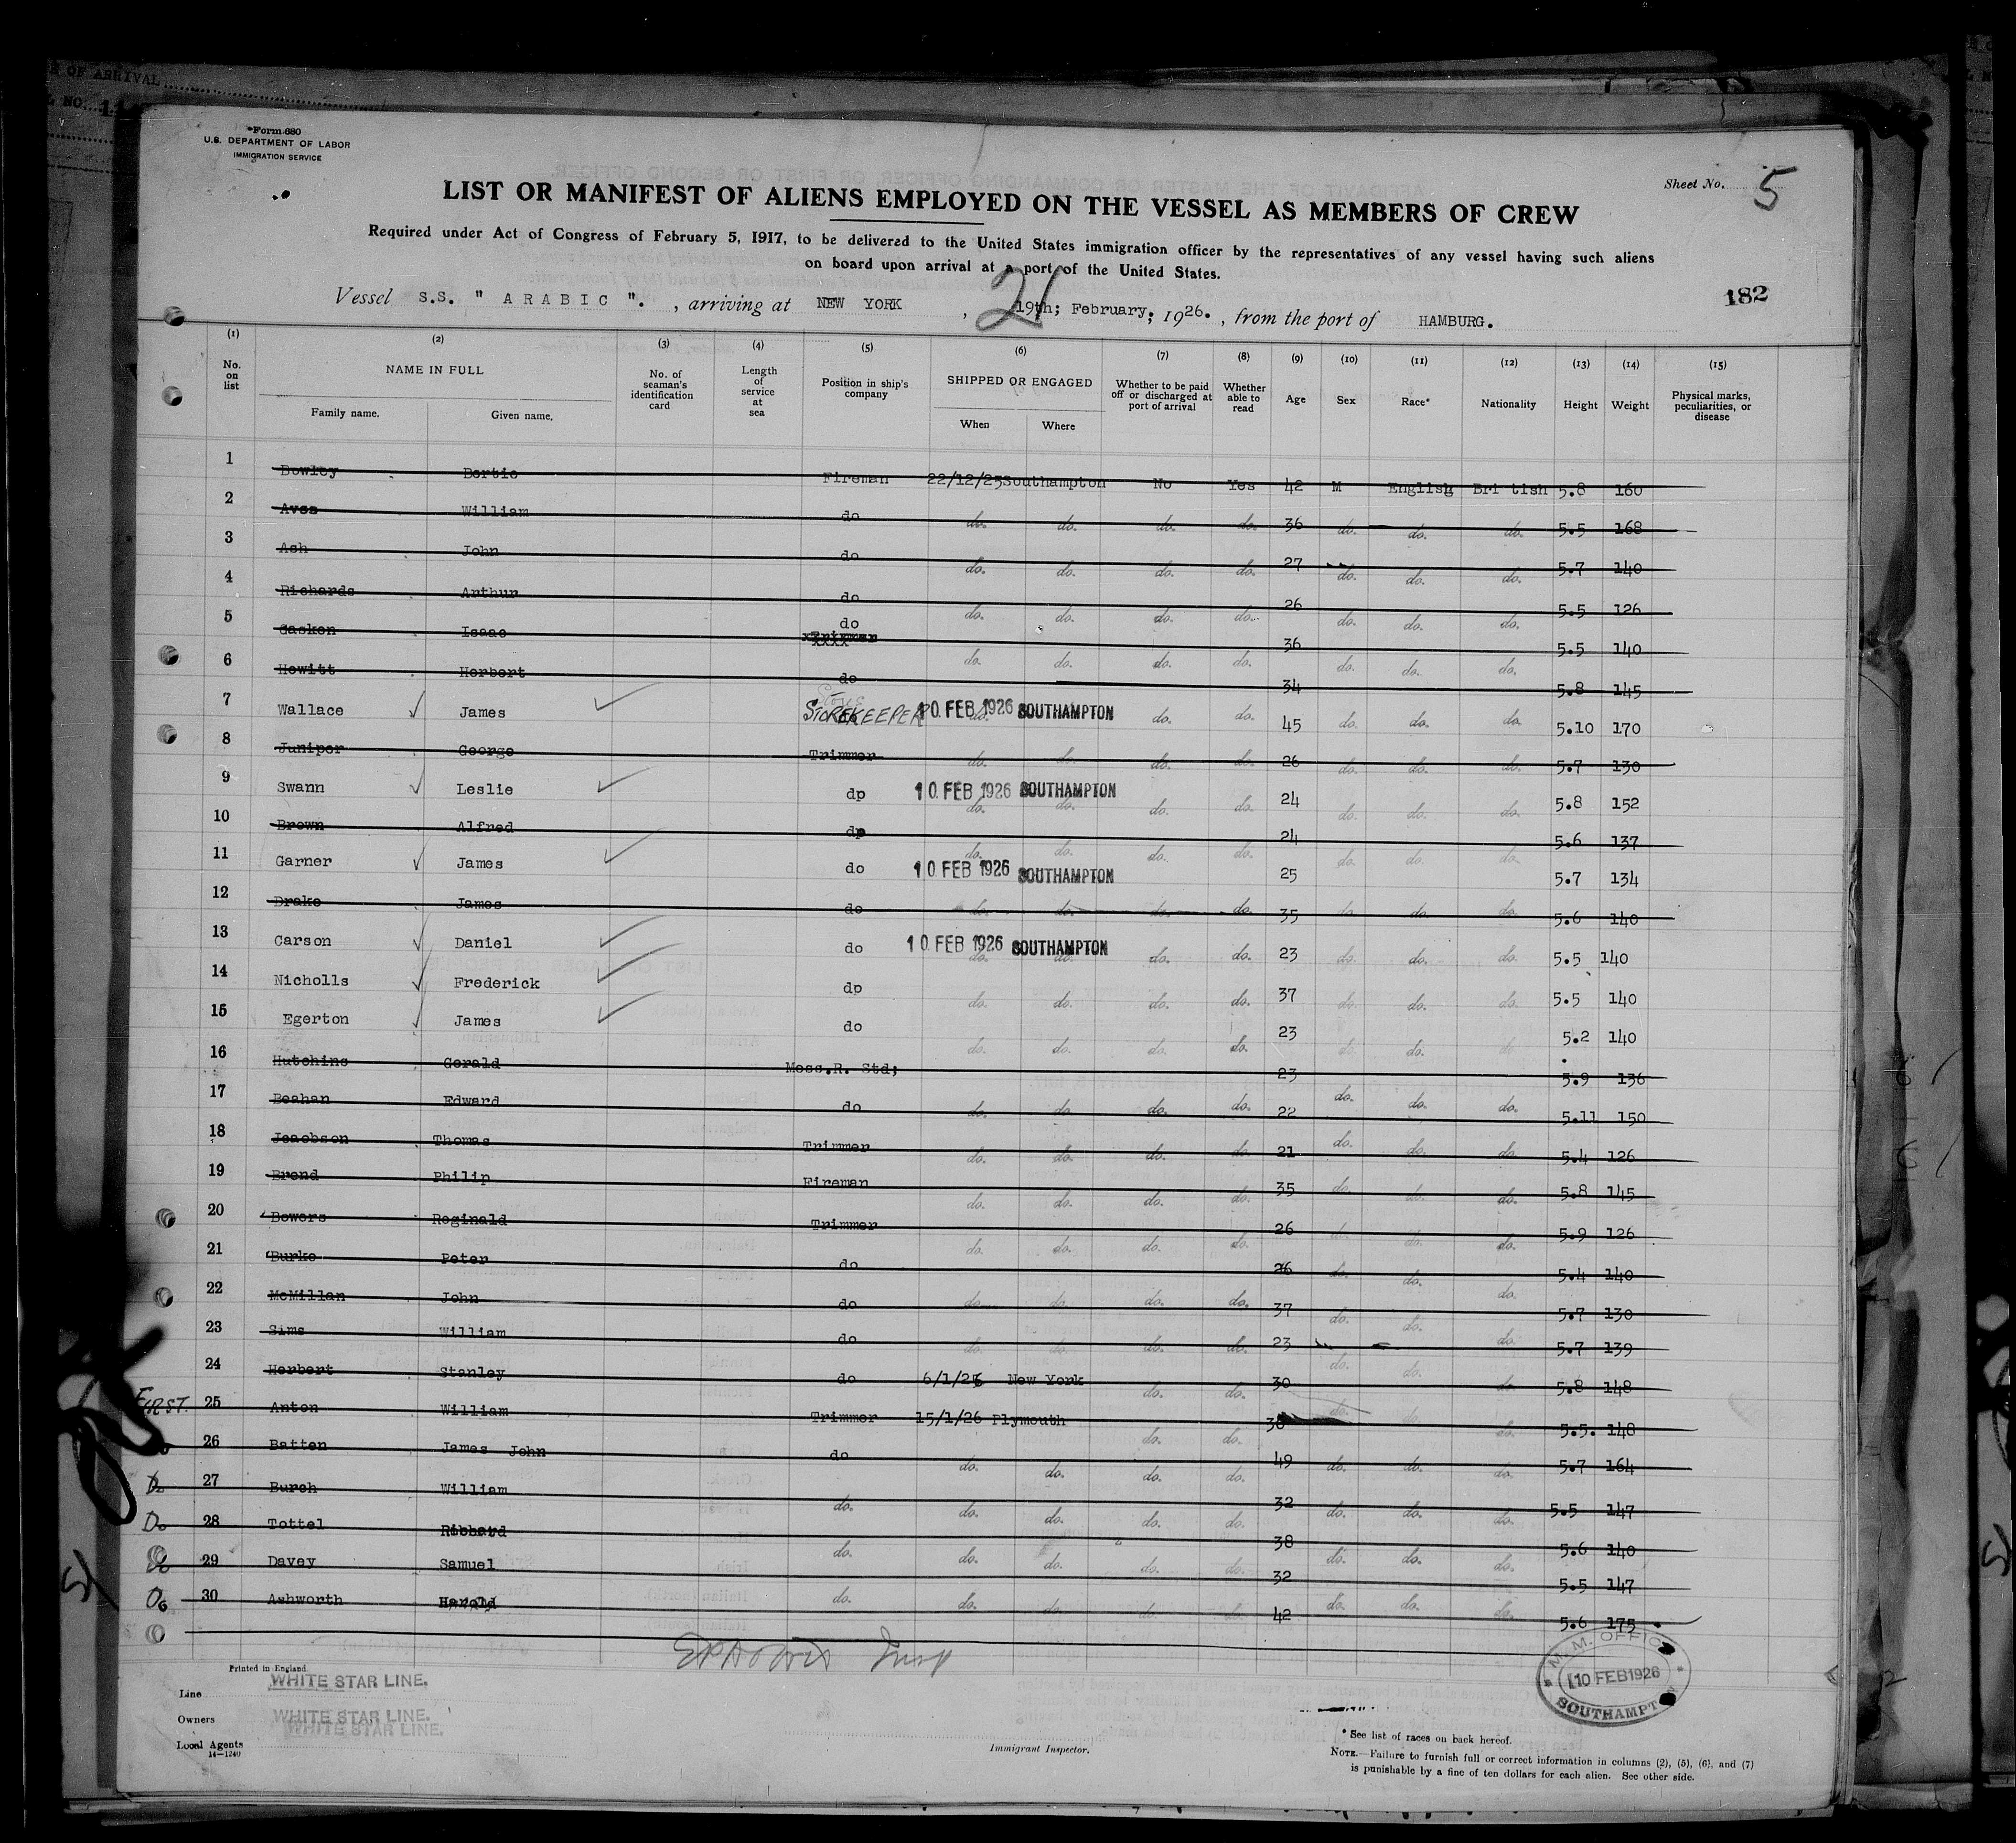 E OF ARRIVAL
L NO. 11
*Form 680
U.S. DEPARTMENT OF LABOR
IMMIGRATION SERVICE
Sheet No. 5
LIST OR MANIFEST OF ALIENS EMPLOYED ON THE VESSEL AS MEMBERS OF CREW
Required under Act of Congress of February 5, 1917, to be delivered to the United States immigration officer by the representatives of any vessel having such aliens
on board upon arrival at a port of the United States.
182
Vessel S.S. " ARABIC ". , arriving at NEW YORK , 21 19th; February; 1926. , from the port of HAMBURG.
(1) (2) (3) (4) (5) (6) (7) (8) (9) (10) (11) (12) (13) (14) (15)
No. on list NAME IN FULL Family name. Given name. No. of seaman's identification card Length of service at sea Position in ship's company SHIPPED OR ENGAGED When Where Whether to be paid off or discharged at port of arrival Whether able to read Age Sex Race* Nationality Height Weight Physical marks, peculiarities, or disease
1 Bowley Bertie Fireman 22/12/25 Southampton No Yes 42 M English Bri tish 5.8 160
2 Aven William do do. do. do. do. 36 do. do. do. 5.5 168
3 Ash John do do. do. do. do. 27 do. do. do. 5.7 140
4 Richards Arthur do do. do. do. do. 26 do. do. do. 5.5 126
5 Gasken Isaac do Trimmer do. do. do. do. 36 do. do. do. 5.5 140
6 Hewitt Herbert do 34 5.8 145
7 Wallace James STOREKEEPER 10 FEB 1926 SOUTHAMPTON do. do. do. 45 do. do. do. 5.10 170
8 Juniper George Trimmer do. do. do. do. 26 do. do. do. 5.7 130
9 Swann Leslie dp 10 FEB 1926 SOUTHAMPTON do. do. do. do. 24 do. do. do. 5.8 152
10 Brown Alfred dp do. do. do. do. 24 do. do. do. 5.6 137
11 Garner James do 10 FEB 1926 SOUTHAMPTON 25 5.7 134
12 Drake James do do. do. do. do. 35 do. do. do. 5.6 140
13 Carson Daniel do 10 FEB 1926 SOUTHAMPTON do. do. do. do. 23 do. do. do. 5.5 140
14 Nicholls Frederick dp do. do. do. do. 37 do. do. do. 5.5 140
15 Egerton James do do. do. do. do. 23 do. do. do. 5.2 140
16 Hutchins Gerald Mess.R. Std; 23 5.9 136
17 Beahan Edward do do. do. do. do. 22 do. do. do. 5.11 150
18 Jcacbson Thomas Trimmer do. do. do. do. 21 do. do. do. 5.4 126
19 Brend Philip Fireman do. do. do. do. 35 do. do. do. 5.8 145
20 Bowers Reginald Trimmer do. do. do. do. 26 do. do. do. 5.9 126
21 Burke Peter do 26 do. do. do. 5.4 140
22 McMillan John do do. do. do. do. 37 do. do. do. 5.7 130
23 Sims William do do. do. do. do. 23 do. do. 5.7 139
24 Herbert Stanley do 6/1/26 New York do. do. 30 do. do. do. 5.8 148
FIRST. 25 Anton William Trimmer 15/1/26 Plymouth do. do. 38 do. do. do. 5.5. 148
26 Batten James John do do. do. do. do. 49 do. do. do. 5.7 164
Do 27 Burch William do. do. do. do. do. 32 do. do. do. 5.5 147
Do 28 Tottel Richard do. do. do. do. do. 38 do. do. do. 5.6 140
Do 29 Davey Samuel 32 5.5 147
Do 30 Ashworth Harold do. do. do. do. do. 42 do. do. do. 5.6 175
Printed in England.
Line WHITE STAR LINE.
Owners WHITE STAR LINE.
WHITE STAR LINE.
Local Agents
14—1240
Immigrant Inspector.
M.M. OFFICE
10 FEB 1926
SOUTHAMPTON
* See list of races on back hereof.
NOTE.—Failure to furnish full or correct information in columns (2), (5), (6), and (7)
is punishable by a fine of ten dollars for each alien. See other side.